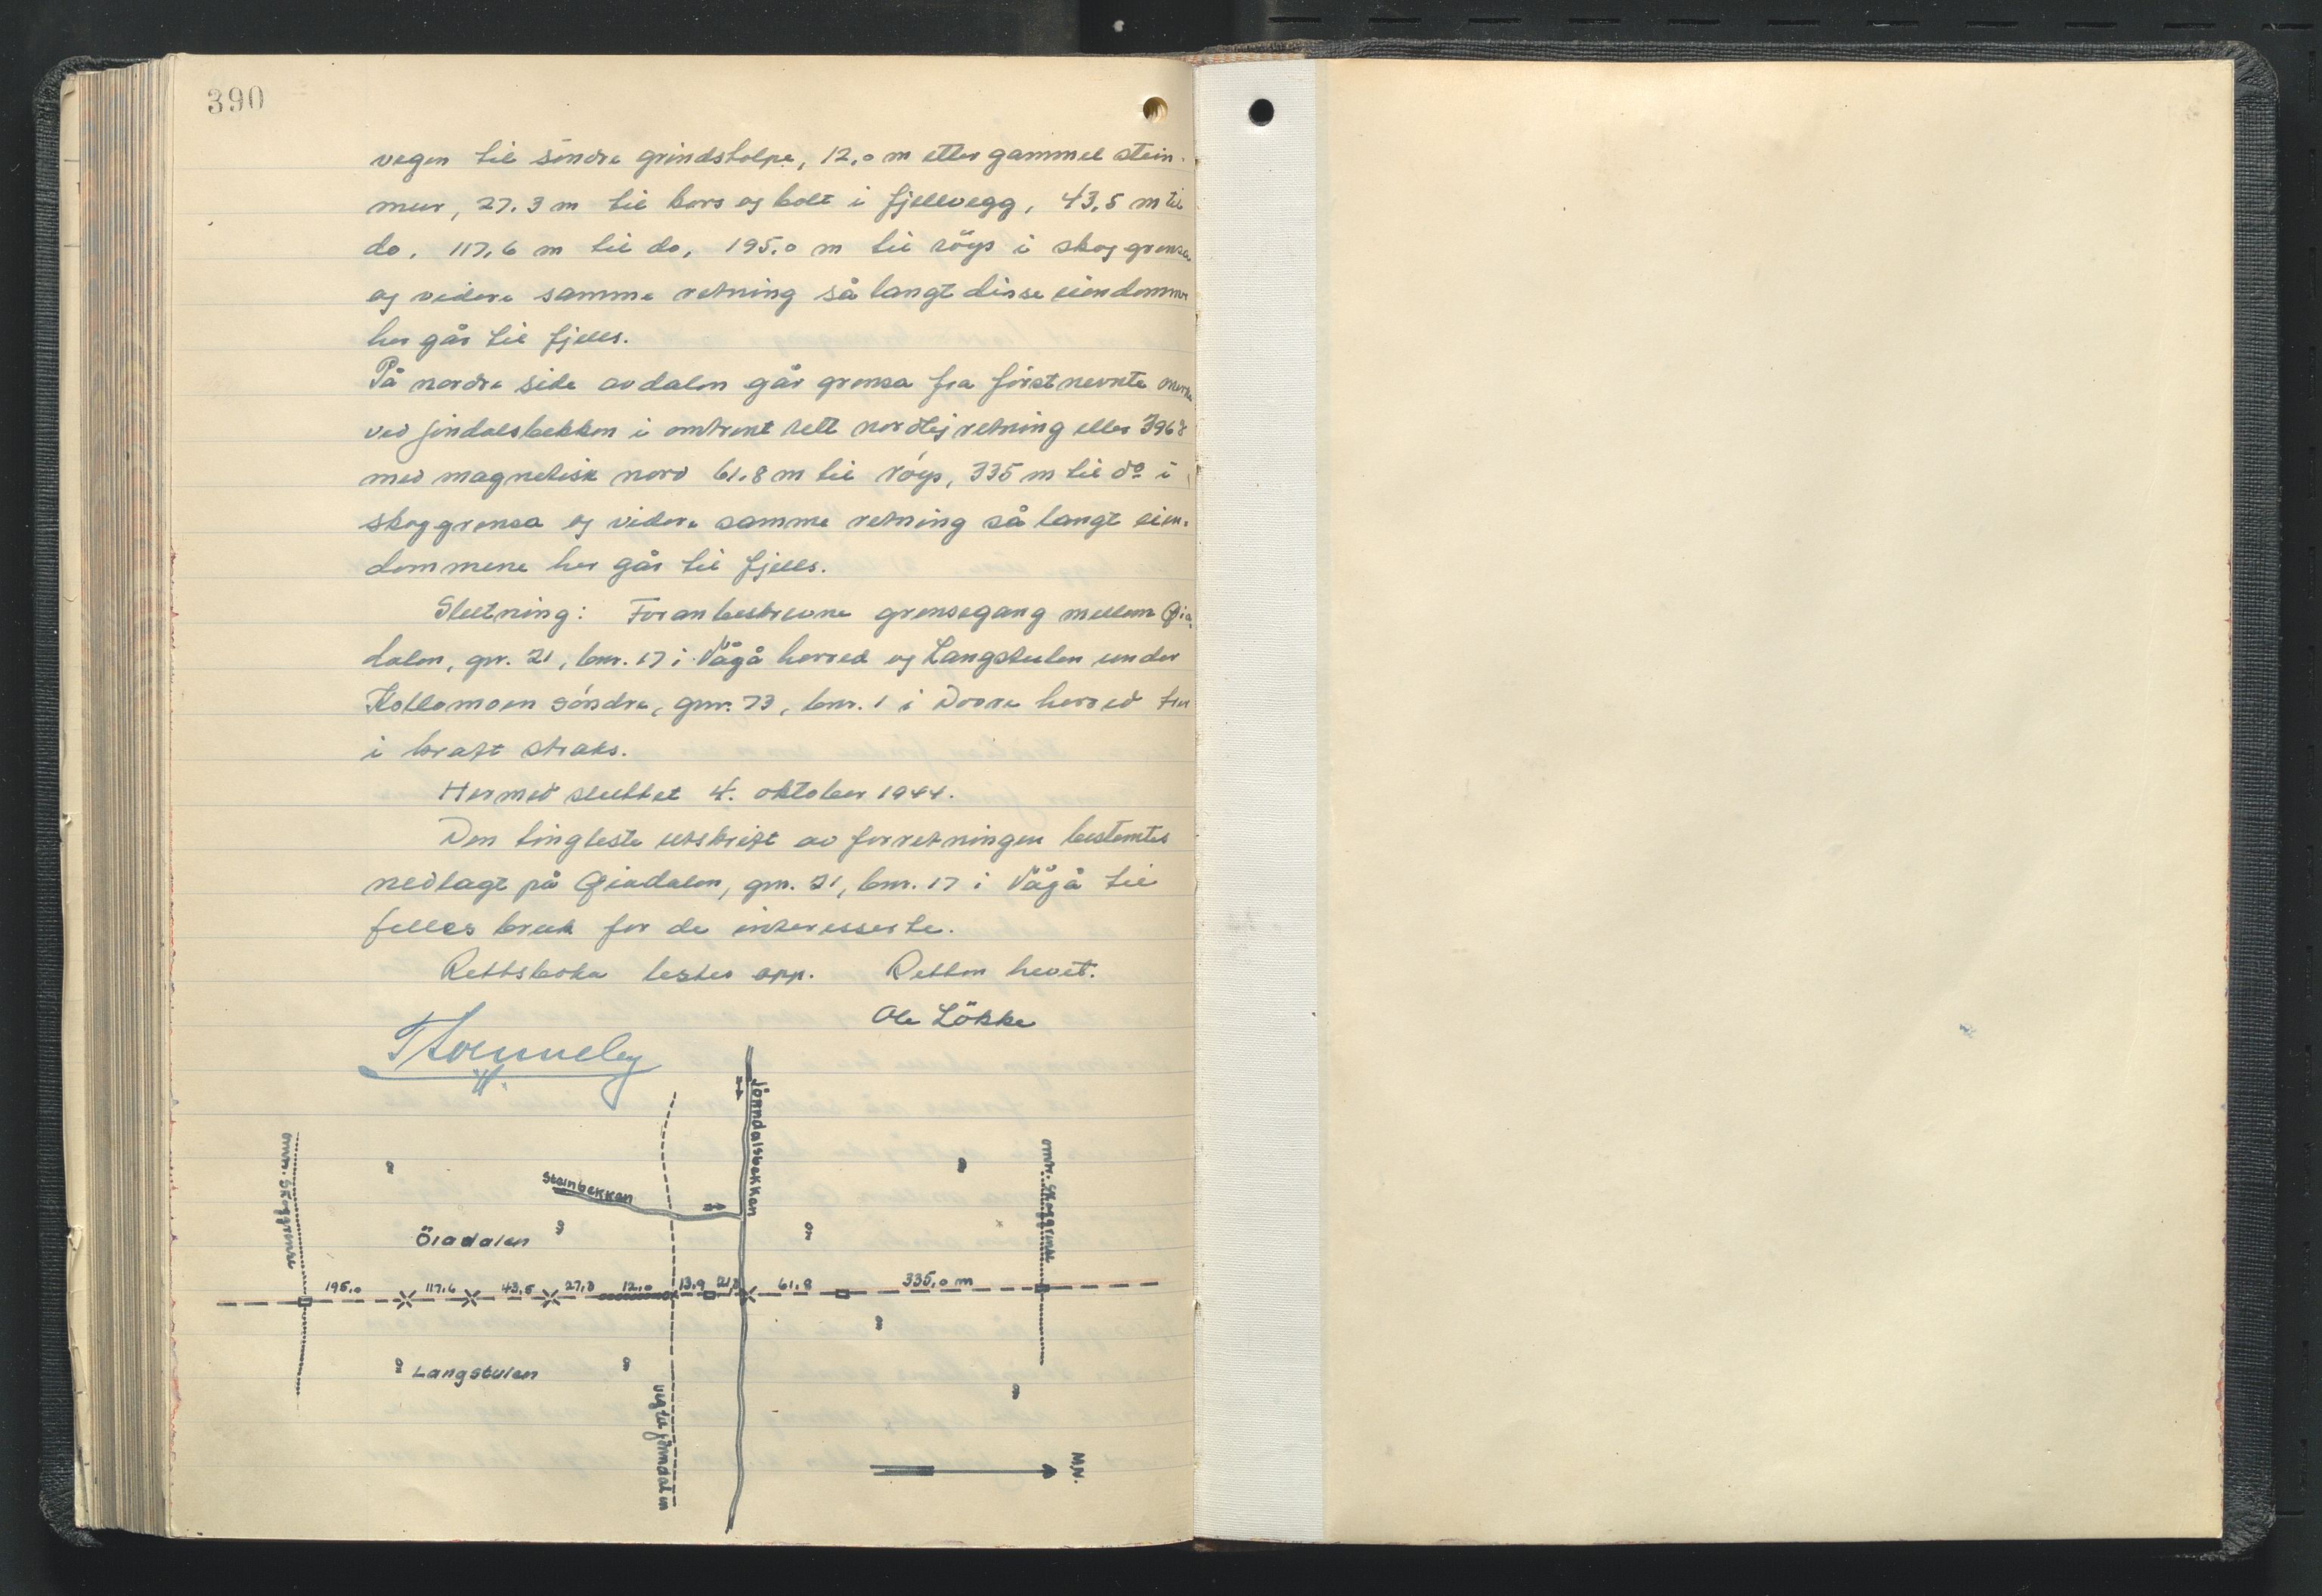 390
vegen til söndre grindstolpe, 12,0 m etter gammel stein-
mur, 27.3 m til kors og bolt i fjellvegg, 43,5 m til
do, 117,6 m til do, 195,0 m til röys i skoggrensa
og videre samme retning så langt disse eiendommer
her går til fjells.
På nordre side av dalen går grensa fra förstnevnte merke
ved Jöndalsbekken i omtrent rett nordlig retning eller 396g
med magnetisk nord 61.8 m til röys, 335 m til do i
skoggrensa og videre samme retning så langt eien-
dommene her går til fjells.
Slutning: Foranbeskrevne grensegang mellem Øia-
dalen, gnr. 21, bnr. 17 i Vågå herred og Langstulen under
Kollomoen söndre, gnr. 73, bnr. 1 i Dovre herred trer
i kraft straks.
Hermed sluttet 4. oktober 1944.
Den tingleste utskrift av forretningen bestemtes
nedlagt på Øiadalen, gnr. 21, bnr. 17 i Vågå til
felles bruk for de interesserte.
Rettsboka lestes opp. Retten hevet.
Ole Lökke
Jönndalsbekken
omtr. Skoggrense
omtr. Skoggrense
Steinbekken
Öiadalen
195,0 117,6 43,5 27,3 12,0 13,9 21,3 61,8 335,0 m
Langstulen
veg til Jönndalen
M.N.